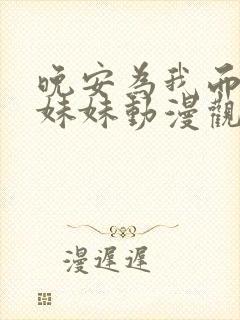 晚安為我而
妹妹動漫觀
漫遲遲